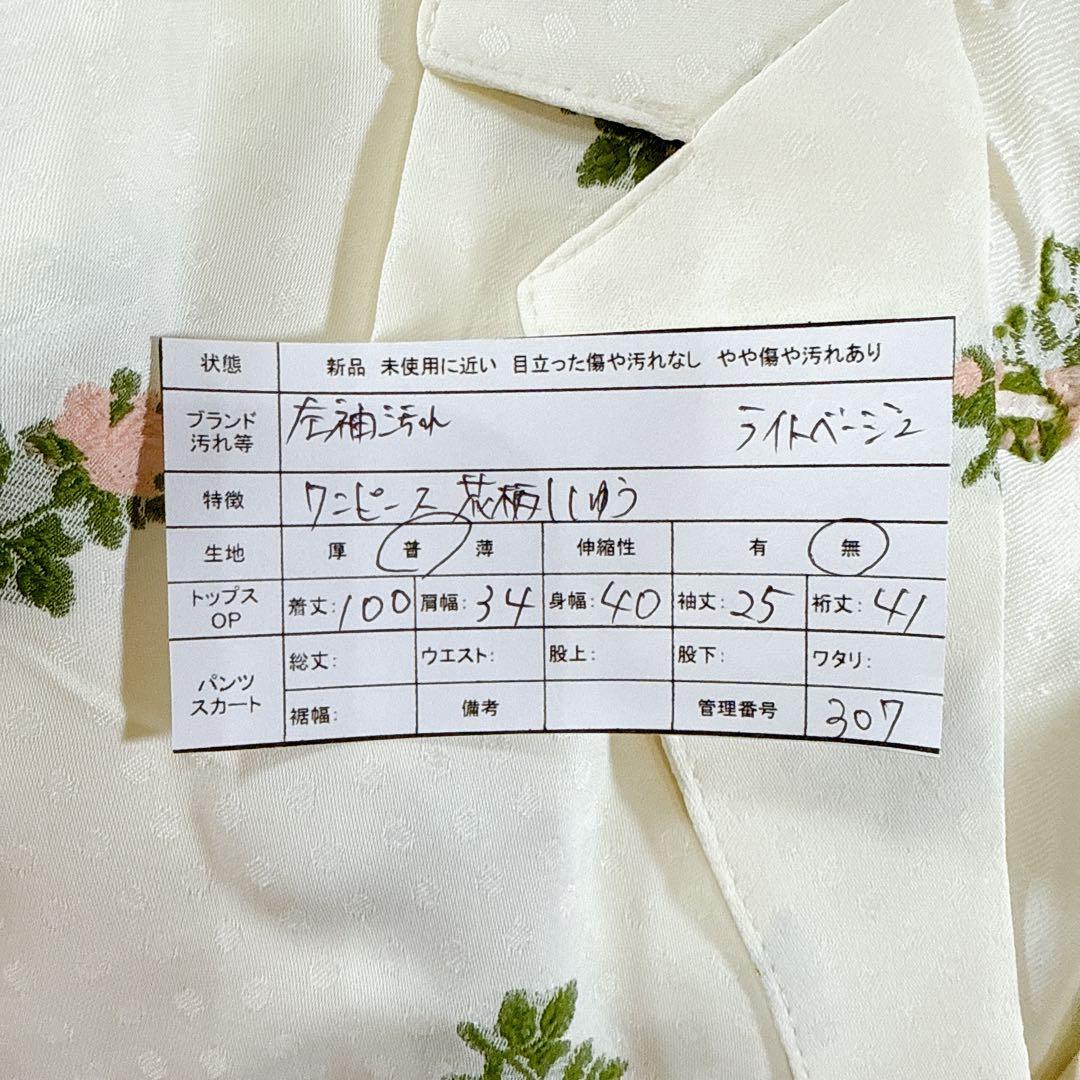 状態 新品 未使用に近い 目立った傷や汚れなし やや傷や汚れあり
ブランド 汚れ等 左袖汚れ ライトベージュ
特徴 ワンピース 花柄ししゅう
生地 厚 普 薄 伸縮性 有 無
トップス OP 着丈:100 肩幅:34 身幅:40 袖丈:25 裄丈:41
パンツ スカート 総丈: ウエスト: 股上: 股下: ワタリ:
裾幅: 備考 管理番号 307